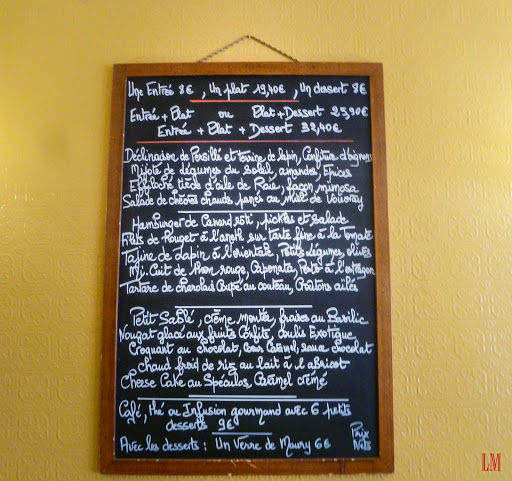 Une Entrée 8€, Un plat 19,40€, Un dessert 8€
Entrée + Plat ou Plat + Dessert 25,90€
Entrée + Plat + Dessert 32,40€
Déclinaison de Persillé et Terrine de lapin, Confiture d'oignons
Mijoté de légumes du soleil, amandes, Epices
Effiloché tiède d'aile de Raie, façon mimosa
Salade de chèvres chauds panés au miel de Vouvray
Hamburger de Canard rôti, pickles et salade
Filets de Rouget à l'aneth sur tarte fine à la Tomate
Tajine de Lapin à l'orientale, Petits légumes, olives
Mi-Cuit de Thon rouge, Caponata, Pesto à l'estragon
Tartare de charolais Coupé au couteau, Croûtons ailés
Petit Sablé, crème montée, fraises au Basilic
Nougat glacé aux fruits Confits, Coulis Exotique
Croquant au chocolat, Coeur Caramel, sauce chocolat
Chaud froid de riz au lait à l'abricot
Cheese Cake au Spéculos, Caramel crémé
Café, thé ou Infusion gourmand avec 6 petits
desserts 9€
Avec les desserts : Un Verre de Maury 6€
Prix
Nets
LM